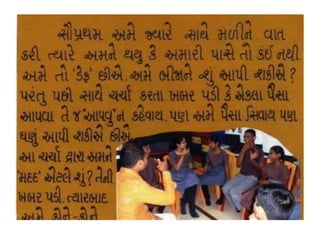 સૌપ્રથમ અમે જ્યારે સાથે મળીને વાત
કરી ત્યારે અમને થયુ કે અમારી પાસે તો કંઈ નથી
અમે તો 'ડેફ' છીએ. અમે બીજાને શું આપી શકીએ?
પરંતુ પછી સાથે ચર્ચા કરતા ખબર પડી કે એકલા પૈસા
આપવા તે જ 'આપવુ'ન કહેવાય, પણ અમે પૈસા સિવાય પણ
ઘણું આપી શકીએ છીએ.
આ ચર્ચા દ્વારા અમને
'મદદ' એટલે શું? તેની
ખબર પડી. ત્યારબાદ
અમે કોને-કોને